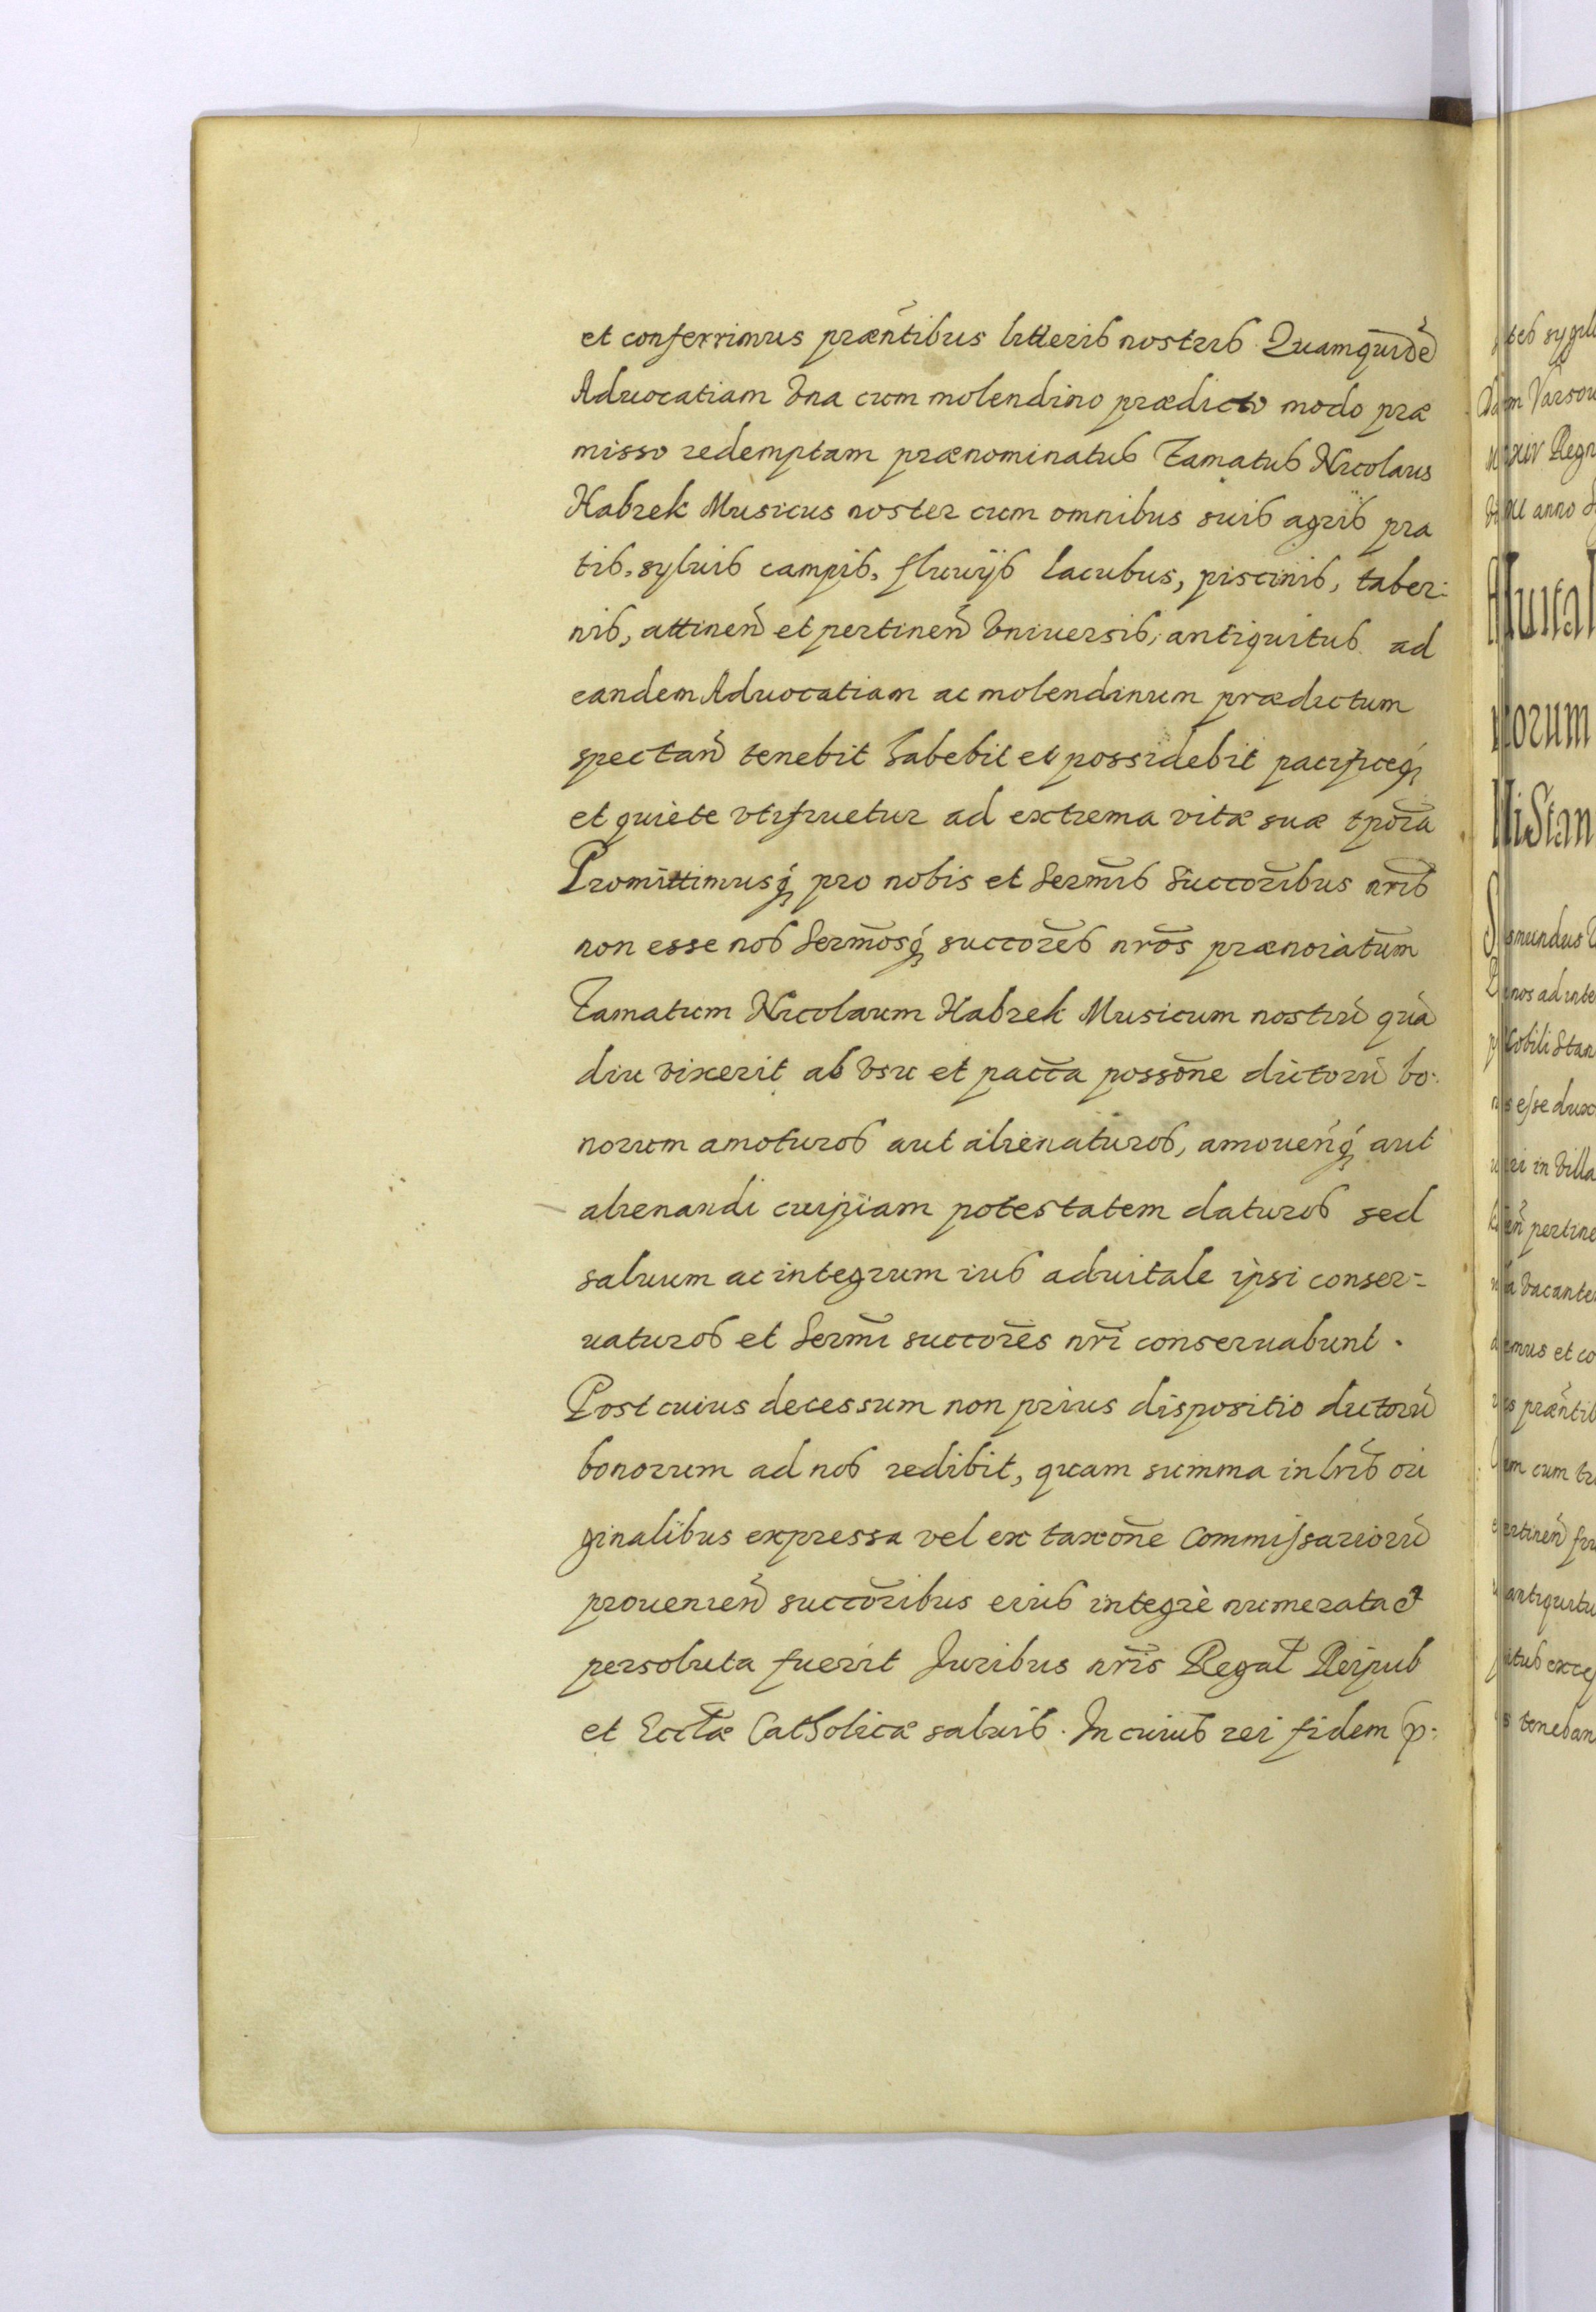 et conferrimus præñtibus litteris nostris. Quamquidē
Aduocatiam vna cum molendino prædicto modo præ
misso redemptam prænominatus Famatus Nicolaus
Habrek Musicus noster cum omnibus suis agris pra
tis, syluis campis, fluuijs lacubus, piscinis, taber-
nis, attineñ et pertineñ vniuersis, antiquitus ad
eandem Aduocatiam ac molendinum prædictum
spectañ tenebit habebit et possidebit pacificeq;
et quiete vtifruetur ad extrema vitæ suæ tpōra
Promittimusq; pro nobis et Serm̄is Succōribus nr̄is
non esse nos Serm̄osq; succōres nr̄os prænoīatum
Famatum Nicolaum Habrek Musicum nostrū quā
diu vixerit ab vsu et pac̄ca possōne dictorū bo-
norum amoturos aut alienaturos, amoueñq; aut
alienandi cuipiam potestatem daturos sed
saluum ac integrum ius aduitale ipsi conser-
uaturos et Serm̄i succōres nr̄i conseruabunt.
Post cuius decessum non prius dispositio dictorū
bonorum ad nos redibit, quam summa in lr̄is ori
ginalibus expressa vel ex taxōne Commissariorū
proueniēn succōribus eius integrè numerata et
persoluta fuerit Juribus nr̄is Regal̄ Reipub
et Eccl̄æ Catholicæ saluis. In cuius rei fidem p-
smundus
nos ad inte
esse dux
in villa
pertine
vacante
mus et co
præñtib
cum
antiquitu
teneban
anno
Regn
orum